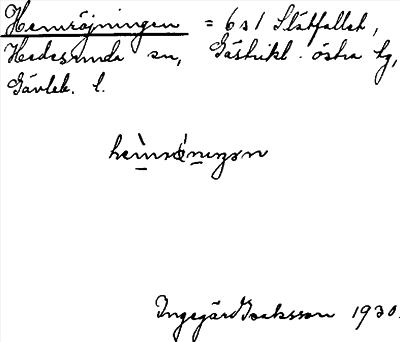 Hemröjningen = 6 s 1 Slåtfallet,
Hedesunda sn, Gästrikl. östra tg,
Gävleb. l.
Ingegärd Isaksson 1930.